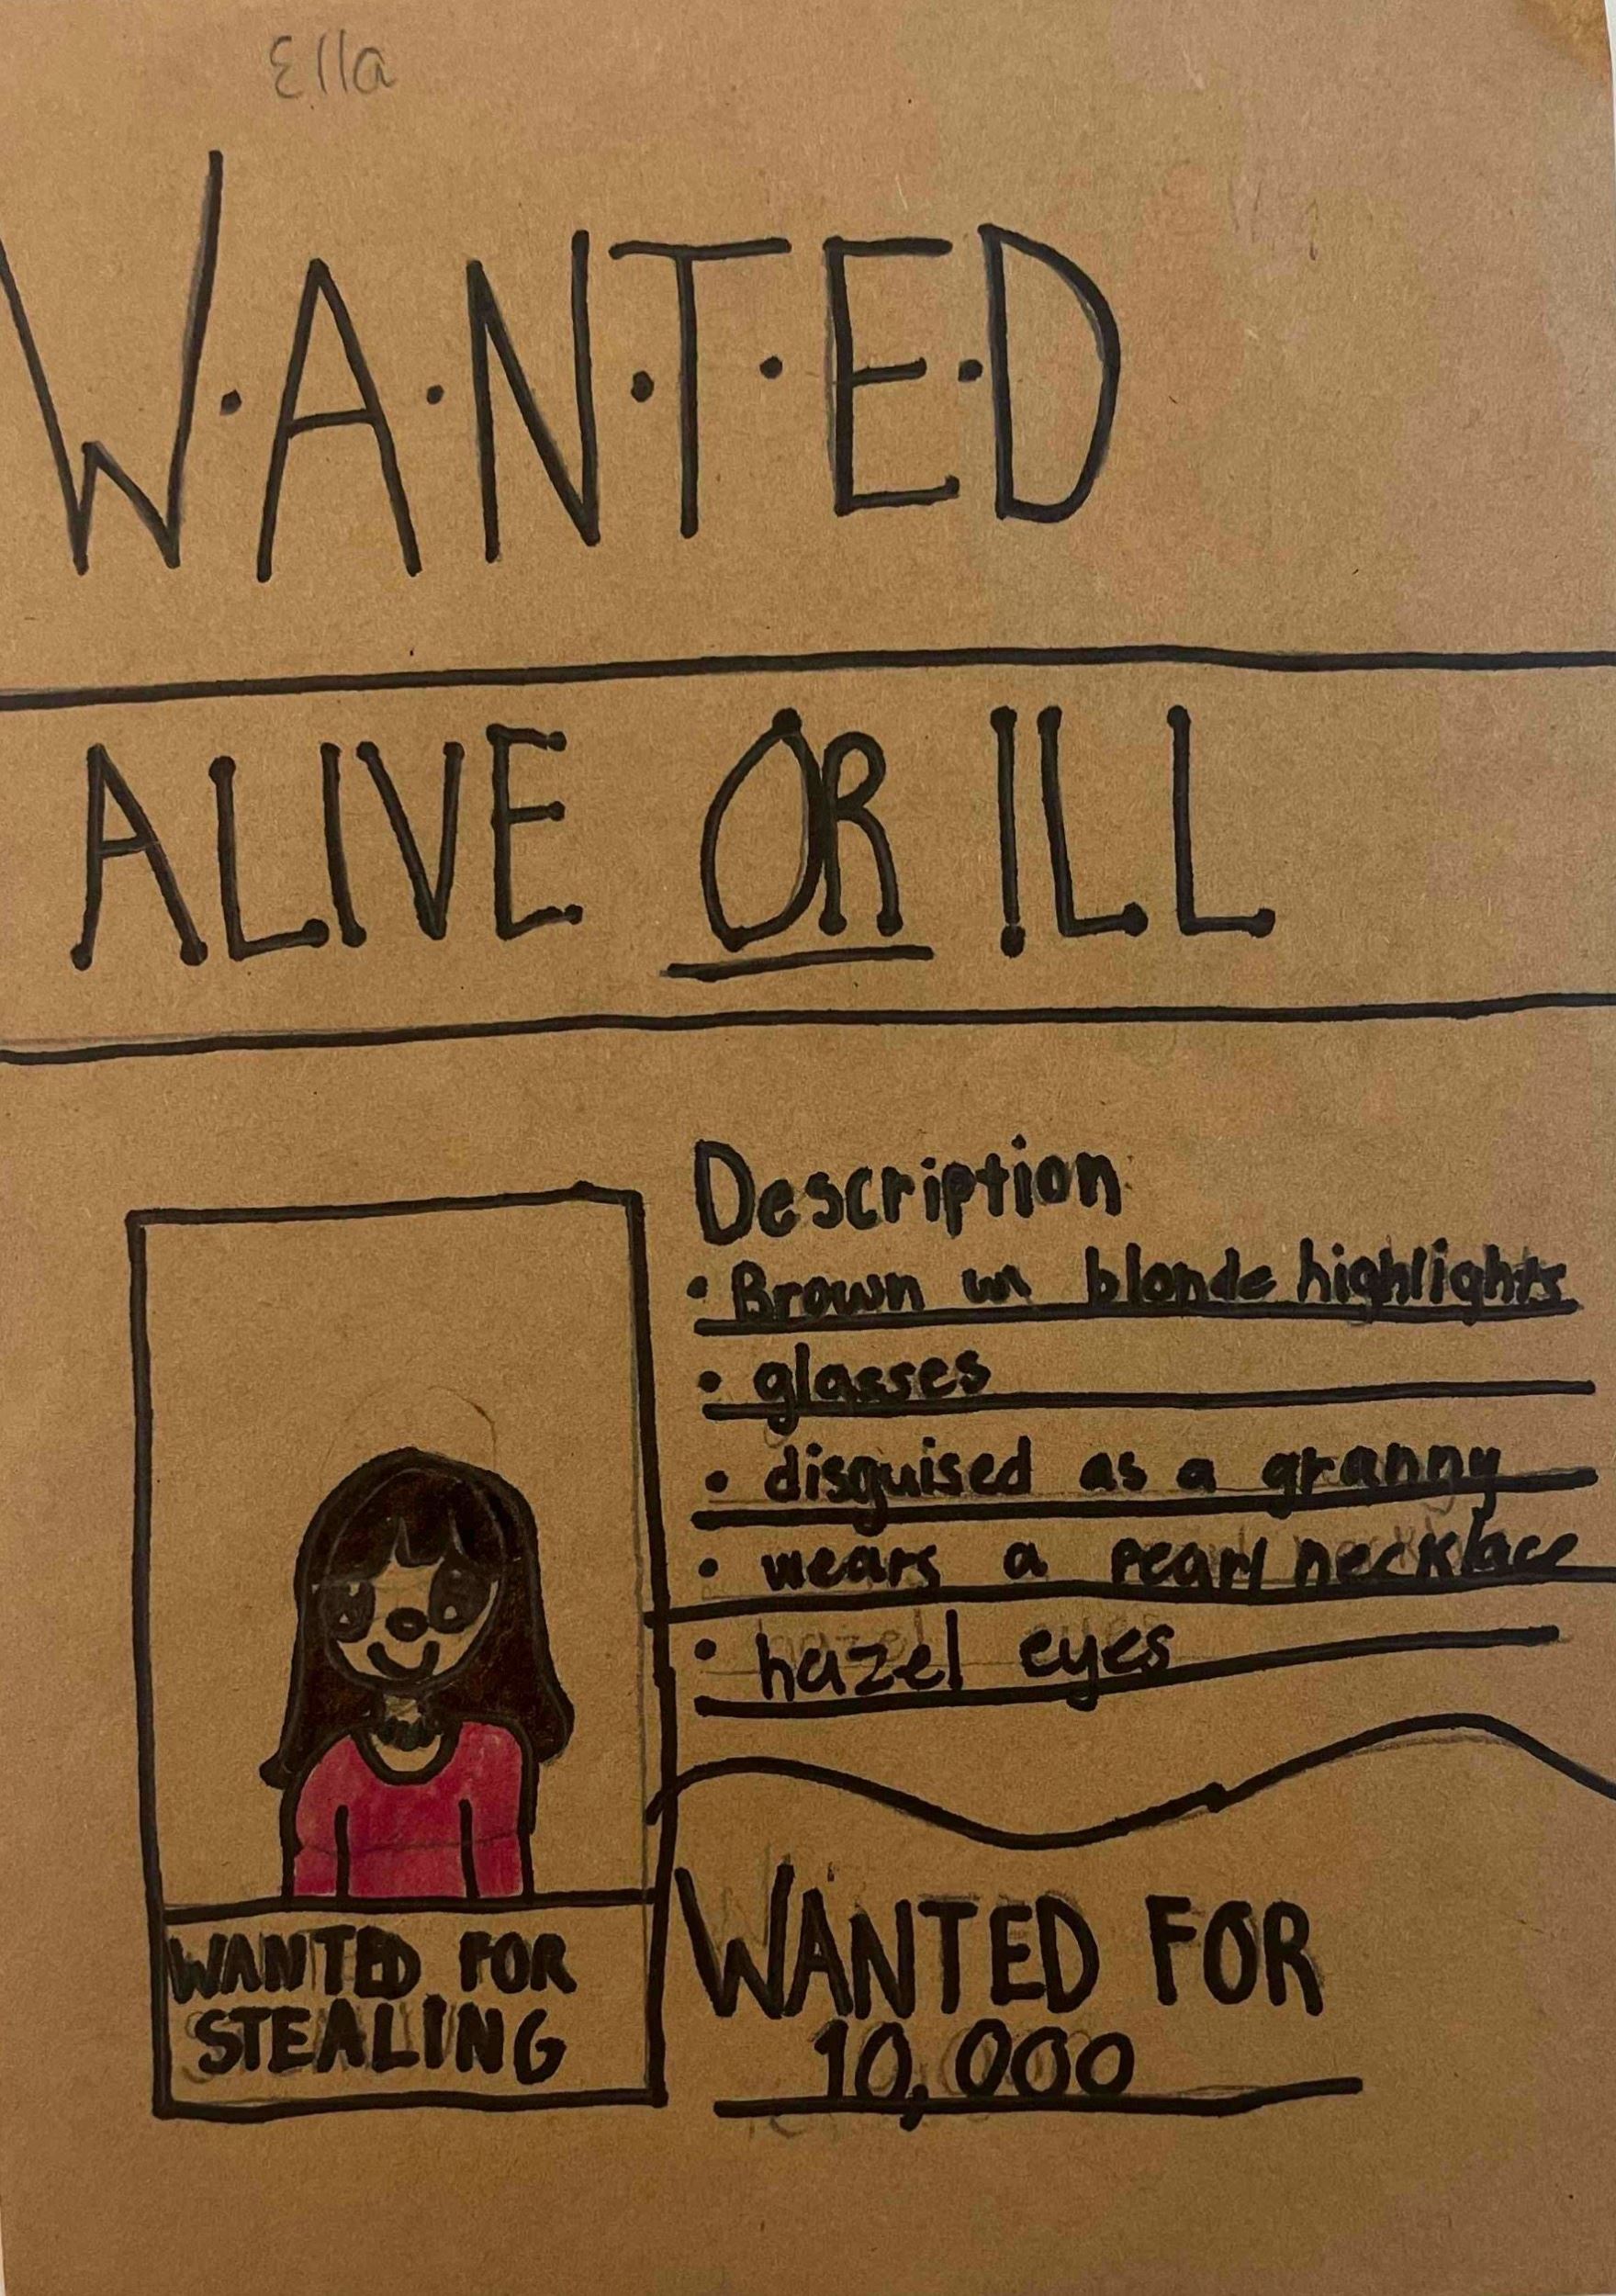 Ella
W·A·N·T·E·D
ALIVE OR ILL
Description
• Brown w blonde highlights
• glasses
• disguised as a granny
• wears a pearl necklace
• hazel eyes
WANTED FOR
STEALING
WANTED FOR
10,000